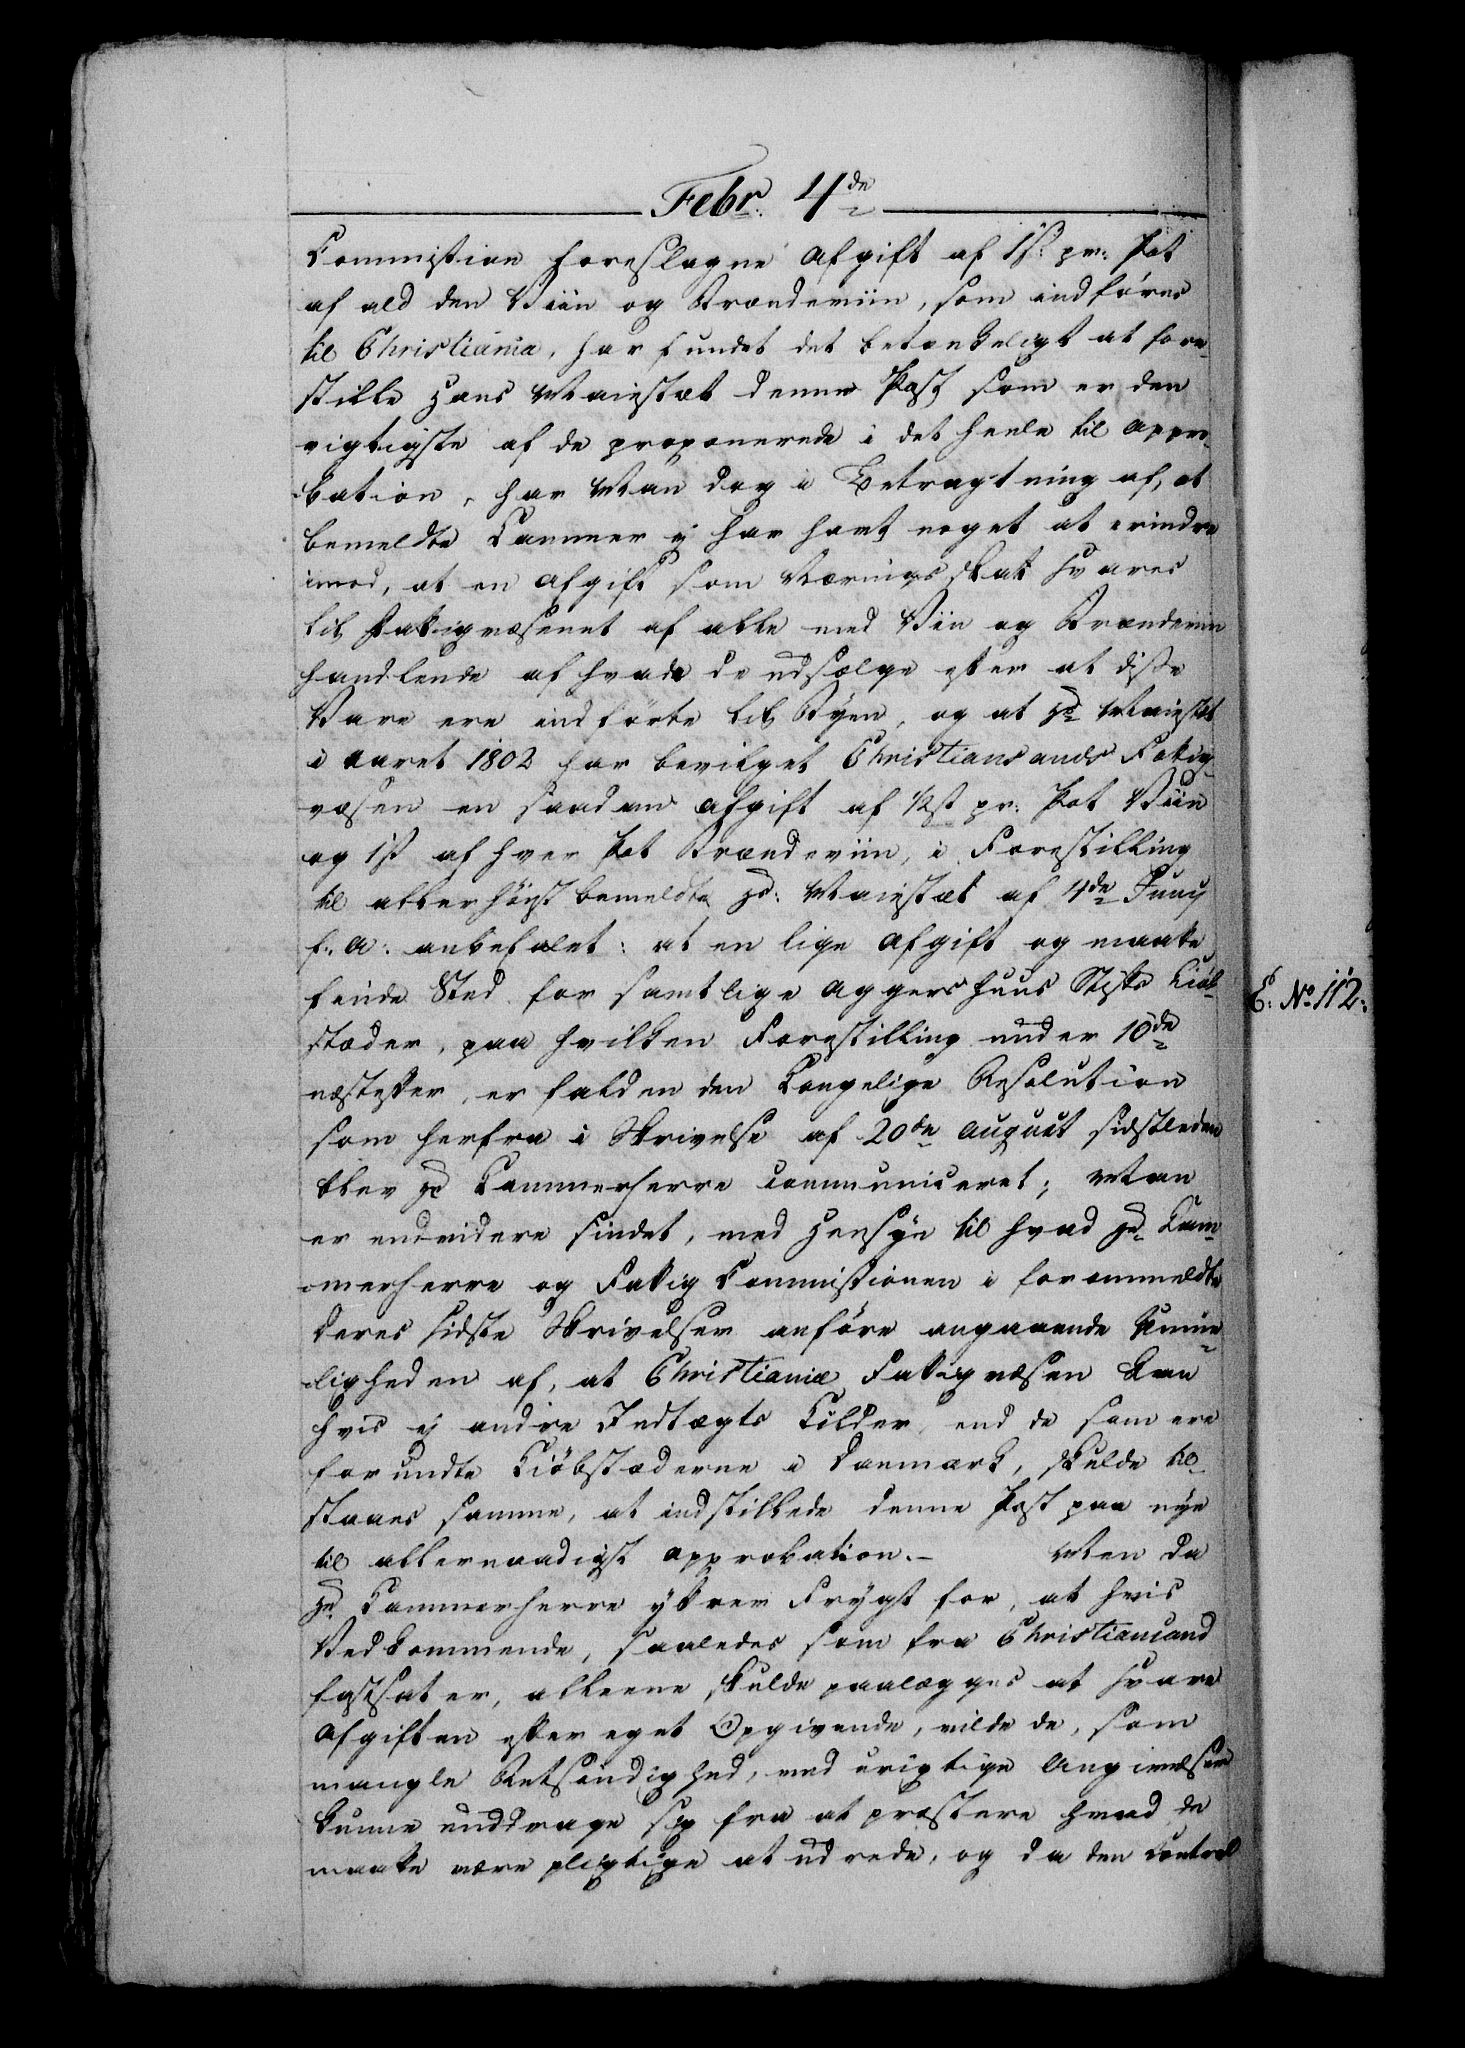 Febr. 4de
Commission foreslagne Afgift af 1s: pr: Pot
af ald den Viin og Brændeviin, som indføres
til Christiania, har fundet det betænkeligt at fore-
stille Hans Maiestæt denne Post som er den
vigtigste af de proponerede i det heele til Appro-
bation, har Man dog i Betragtning af, at
bemeldte Cammer ej har havt noget at erindre
imod, at en Afgift som Næringsskat svares
til Fattigvæsenet af alle med Viin og Brændeviin
handlende af hvad de udsælge efter at disse
Vare ere indførte til Byen, og at Hs Maiestæt
i Aaret 1802 har bevilget Christiansands Fattig-
væsen en saadan Afgift af ½s pr: Pot Viin
og 1s af hver Pot Brændeviin, i Forestilling
til allerhøistbemeldte Hs: Maiestæt af 4de Junij
f: A: anbefalet: at en lige Afgift og maatte
finde Sted for samtlige Aggershuus Stifts Kiøb-
stæder, paa hvilken Forestilling under 10de
næstefter, er falden den Kongelige Resolution
som herfra i Skrivelse af 20de August sidstleden
blev Hr Kammerherre communiceret; Man
er endvidere sindet, med Hensyn til hvad Hr Kam-
merherre og Fattig Commissionen i forommeldte
Deres sidste Skrivelser anføre angaaende Umue-
ligheden af, at Christiania Fattigvæsen kan
hvis ej andre Indtægts Kilder, end de som ere
forundte Kiøbstæderne i Danmark, skulde til-
staaes samme, at indstillede denne Post paa nye
til allernaadigst Approbation.– Men da
Hr Kammerherre yttrer Frygt for, at hvis
Vedkommende, saaledes som fra Christiansand
fastsat er, alleene skulde paalægges at svare
Afgiften efter eget Opgivende, vilde de, som
mangle Retsindighed, ved urigtige Angivelser
kunne unddrage sig fra at præstere hvad de
maatte være pligtige at udrede, og da den Control
E: No 112: